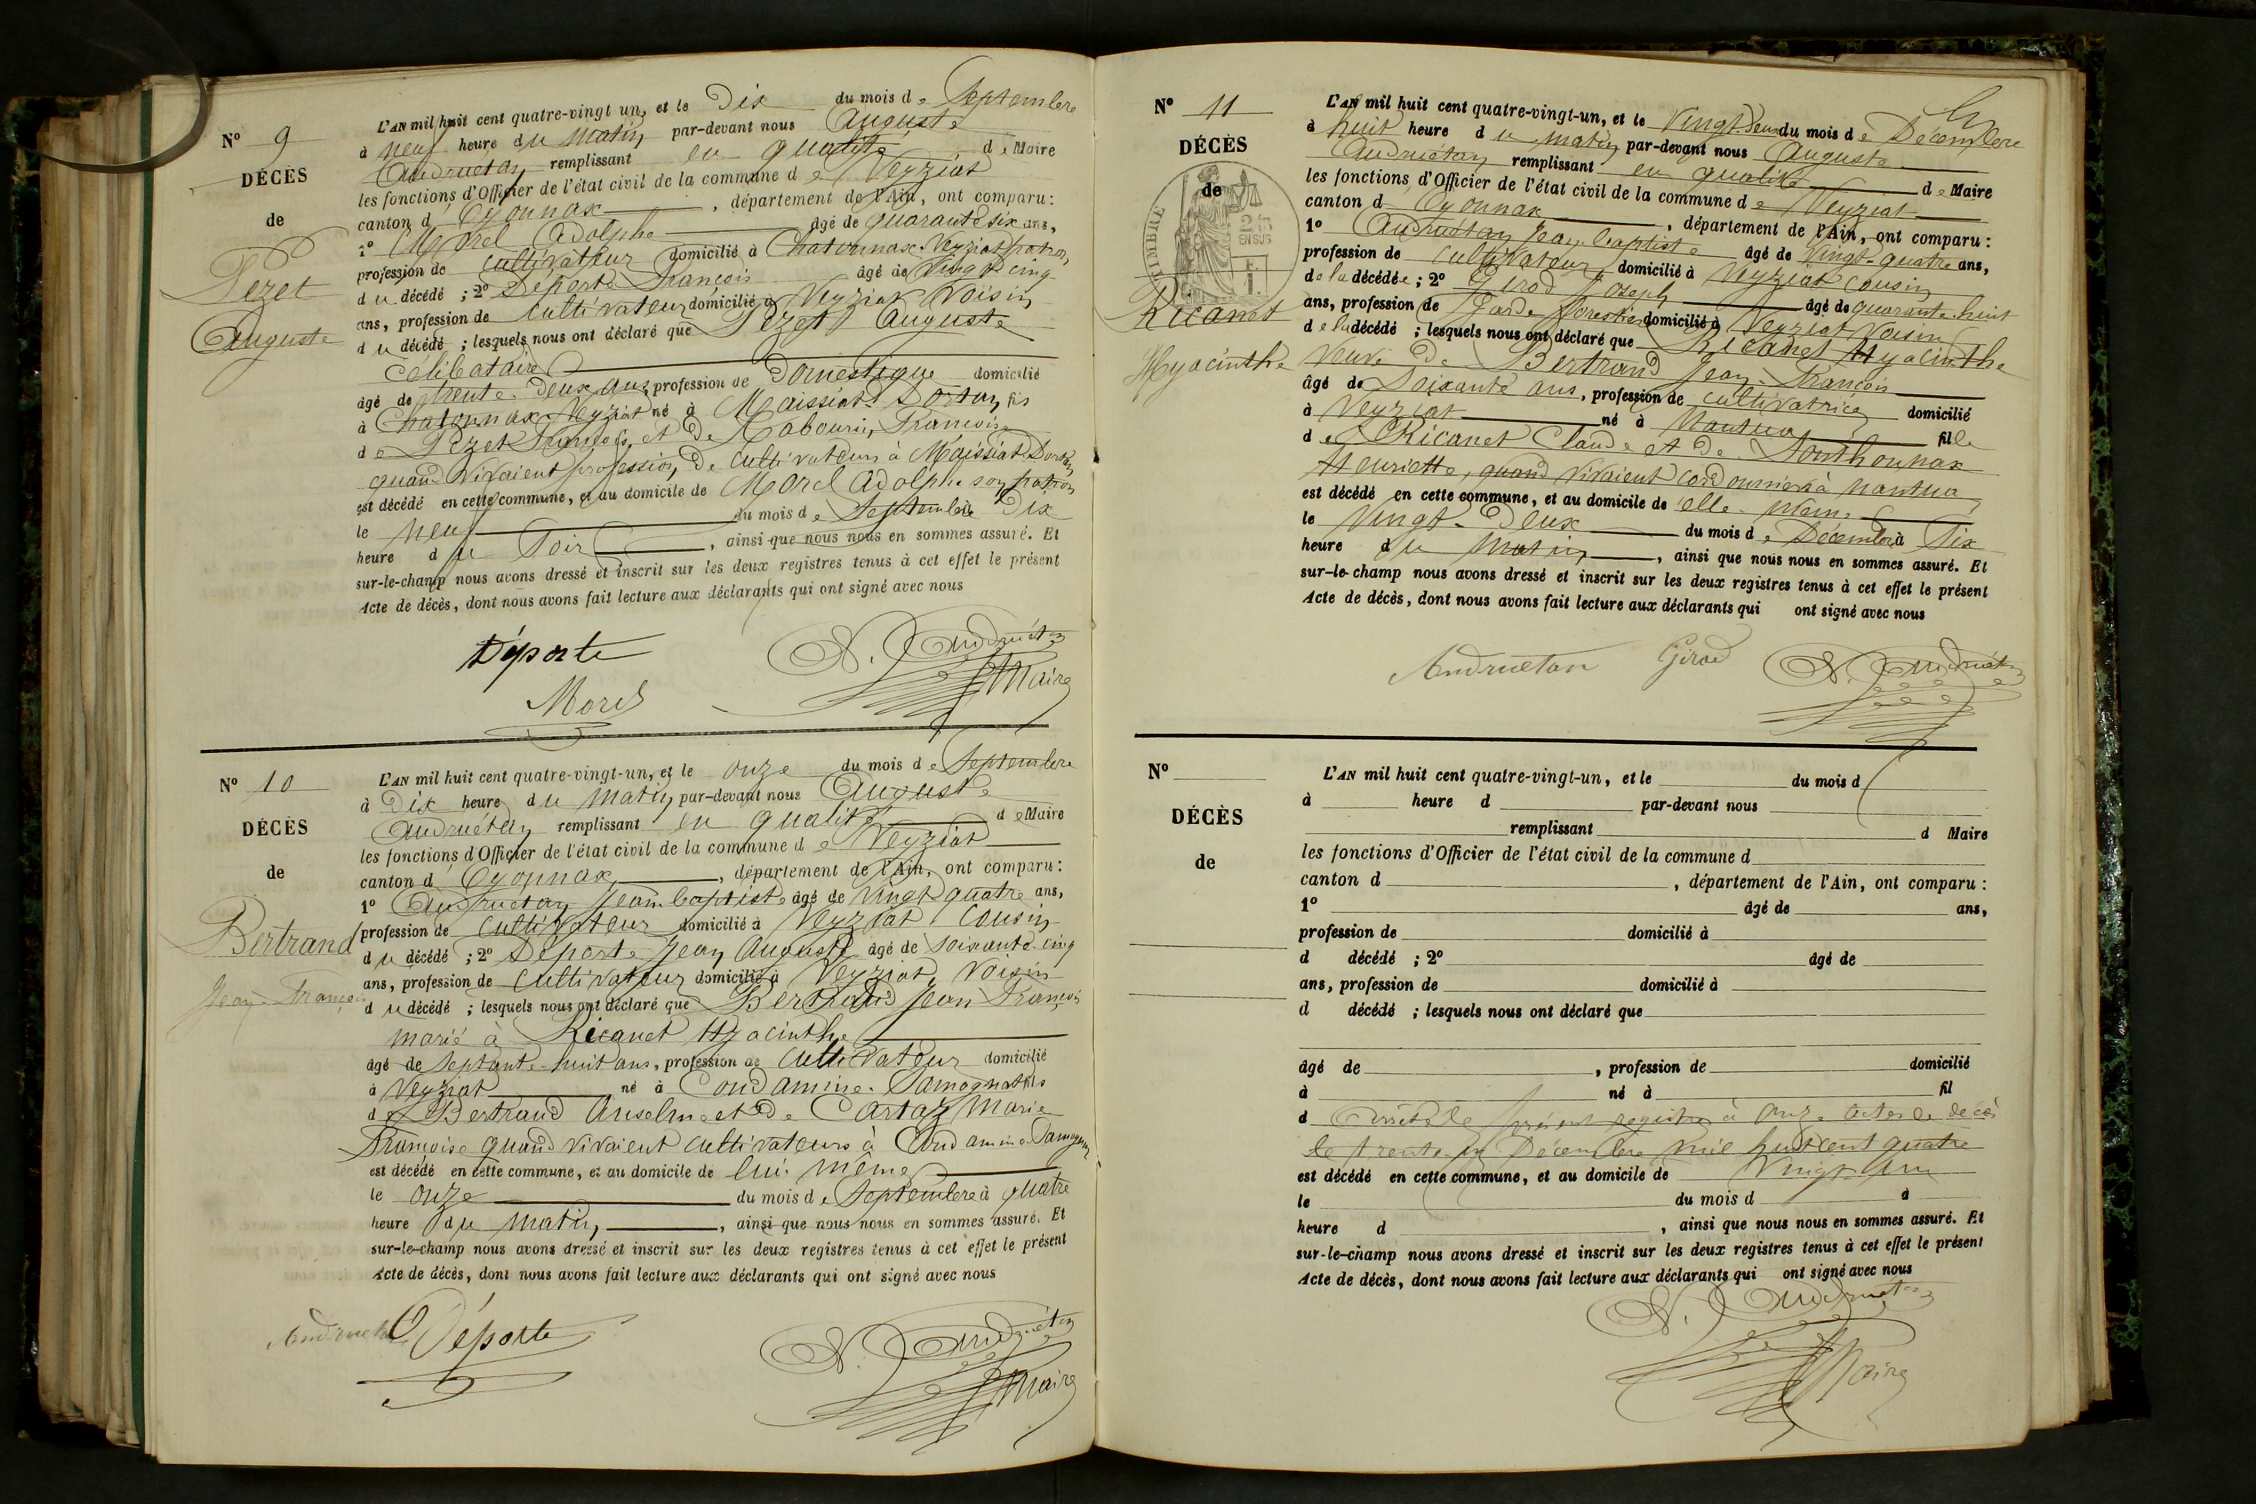 N° 9
DÉCÈS
de
Pezet
Auguste
L'AN mil huit cent quatre-vingt un, et le Dix du mois de Septembre
à neuf heure du matin par-devant nous Auguste
Andruétan remplissant en qualité de Maire
les fonctions d'Officier de l'état civil de la commune de Veyziat
canton d'Oyonnax, département de l'Ain, ont comparu:
1° Morel Adolphe âgé de quarante six ans,
profession de cultivateur domicilié à Chatonnax-Veyziat patron
du décédé ; 2° Déporte François âgé de Vingt cinq
ans, profession de cultivateur domicilié à Veyziat Voisin
du décédé ; lesquels nous ont déclaré que Pezet Auguste
Célibataire
âgé de trente-deux ans, profession de Domestique domicilié
à Chatonnax-Veyziat né à Maissiat-Dortan fils
de Pezet François, et de Tabourin, Françoise
quand vivaient profession de cultivateurs à Maissiat Dortan
est décédé en cette commune, et au domicile de Morel Adolphe son patron
le neuf du mois de Septembre à Dix
heure du Soir, ainsi que nous nous en sommes assuré. Et
sur-le-champ nous avons dressé et inscrit sur les deux registres tenus à cet effet le présent
Acte de décès, dont nous avons fait lecture aux déclarants qui ont signé avec nous
Déporte
A. Andruétan
Maire
Morel
N° 10
DÉCÈS
de
Bertrand
Jean-François
L'AN mil huit cent quatre-vingt-un, et le onze du mois de Septembre
à Dix heure du matin par-devant nous Auguste
Andruétan remplissant en qualité de Maire
les fonctions d'Officier de l'état civil de la commune de Veyziat
canton d'Oyonnax, département de l'Ain, ont comparu:
1° Andruétan Jean-baptiste âgé de Vingt quatre ans,
profession de cultivateur domicilié à Veyziat Cousin
du décédé ; 2° Déporte Jean Auguste âgé de soixante-cinq
ans, profession de cultivateur domicilié à Veyziat, Voisin
du décédé ; lesquels nous ont déclaré que Bertrand Jean François
marié à Ricanet Hyacinthe
âgé de septante-huit ans, profession de cultivateur domicilié
à Veyziat né à Condamine-Samognat fils
de Bertrand Anselme et de Cartaz Marie
Françoise quand vivaient cultivateurs à Condamine Samognat
est décédé en cette commune, et au domicile de lui même
le onze du mois de Septembre à quatre
heure du matin, ainsi que nous nous en sommes assuré. Et
sur-le-champ nous avons dressé et inscrit sur les deux registres tenus à cet effet le présent
Acte de décès, dont nous avons fait lecture aux déclarants qui ont signé avec nous
Déporte
A. Andruétan
Maire
N° 11
DÉCÈS
de
TIMBRE
Ricanet
Hyacinthe
L'AN mil huit cent quatre-vingt-un, et le Vingt-deux du mois de Décembre
à huit heure du matin par-devant nous Auguste
Andruétan remplissant en qualité de Maire
les fonctions d'Officier de l'état civil de la commune de Veyziat
canton d'Oyonnax, département de l'Ain, ont comparu :
1° Andruétan Jean-baptiste âgé de Vingt-quatre ans,
profession de cultivateur domicilié à Veyziat Cousin
de la décédée ; 2° Girod Joseph âgé de quarante-huit
ans, profession de Garde forestier domicilié à Veyziat Voisin
de la décédé ; lesquels nous ont déclaré que Ricanet Hyacinthe
veuve de Bertrand Jean-François
âgé de Soixante ans, profession de cultivatrice domicilié
à Veyziat né à Nantua fille
de Ricanet Claude et de Sonthonnax
Henriette, quand vivaient cordonniers à Nantua
est décédé en cette commune, et au domicile de elle-même
le Vingt-deux du mois de Décembre à Six
heure du matin, ainsi que nous nous en sommes assuré. Et
sur-le-champ nous avons dressé et inscrit sur les deux registres tenus à cet effet le présent
Acte de décès, dont nous avons fait lecture aux déclarants qui ont signé avec nous
Andruétan Girod A. Andruétan
N°
DÉCÈS
de
L'AN mil huit cent quatre-vingt-un, et le du mois d
à heure d par-devant nous
remplissant d Maire
les fonctions d'Officier de l'état civil de la commune d
canton d , département de l'Ain, ont comparu :
1° âgé de ans,
profession de domicilié à
d décédé ; 2° âgé de
ans, profession de domicilié à
d décédé ; lesquels nous ont déclaré que
âgé de , profession de domicilié
à né à fil
d Arrêté le présent registre à onze actes de décès
le trente un Décembre mil huit cent quatre
est décédé en cette commune, et au domicile de Vingt-un
le du mois d à
heure d , ainsi que nous nous en sommes assuré. Et
sur-le-champ nous avons dressé et inscrit sur les deux registres tenus à cet effet le présent
Acte de décès, dont nous avons fait lecture aux déclarants qui ont signé avec nous
A. Andruétan
Maire